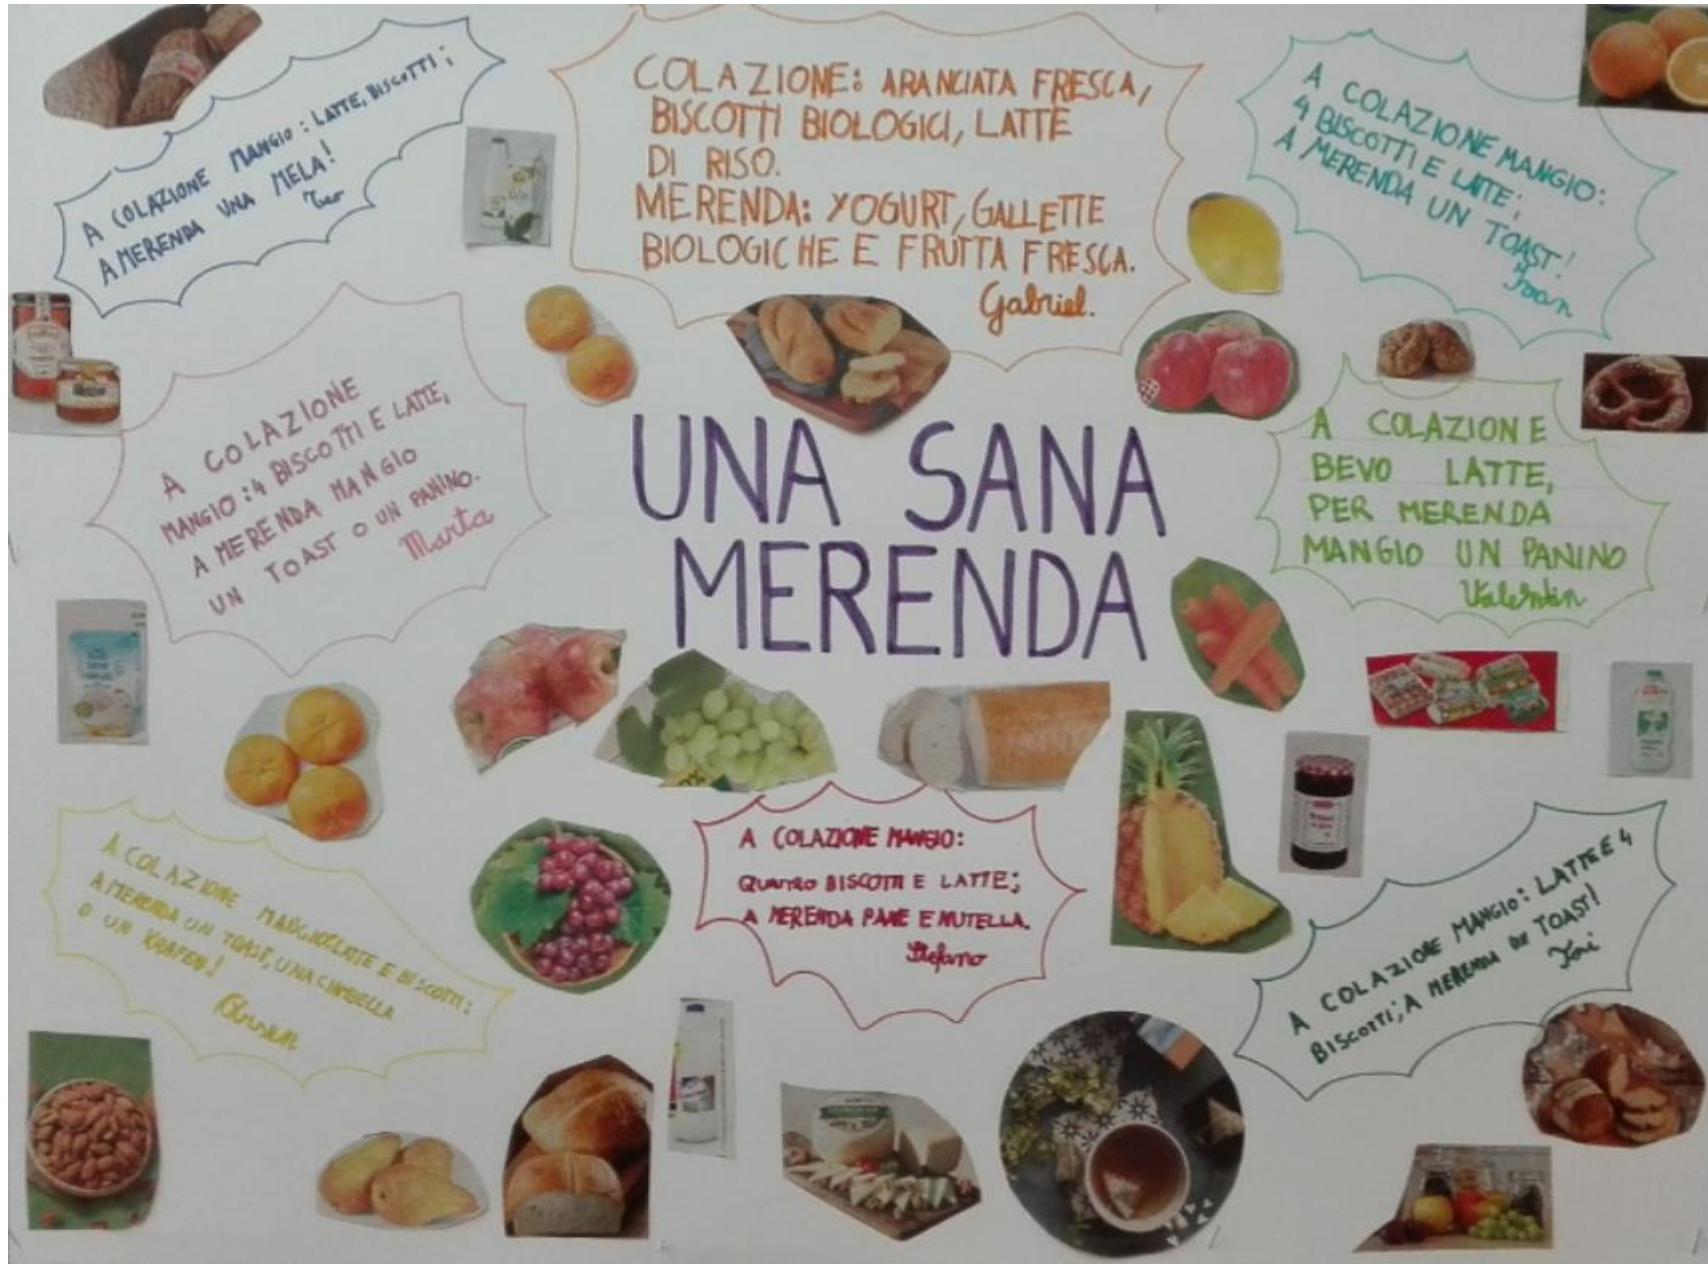 A COLAZIONE MANGIO: LATTE, BISCOTTI;
A MERENDA UNA MELA!
COLAZIONE: ARANCIATA FRESCA,
BISCOTTI BIOLOGICI, LATTE
DI RISO.
MERENDA: YOGURT, GALLETTE
BIOLOGICHE E FRUTTA FRESCA.
Gabriel.
A COLAZIONE MANGIO:
4 BISCOTTI E LATTE;
A MERENDA UN TOAST!
A COLAZIONE
MANGIO: 4 BISCOTTI E LATTE,
A MERENDA MANGIO
UN TOAST O UN PANINO.
Marta
UNA SANA
MERENDA
A COLAZIONE
BEVO LATTE,
PER MERENDA
MANGIO UN PANINO
Valentin
A COLAZIONE MANGIO LATTE E BISCOTTI:
A MERENDA UN TOAST, UNA CIAMBELLA
O UN KRAFEN!
A COLAZIONE MANGIO:
QUATTRO BISCOTTI E LATTE;
A MERENDA PANE E NUTELLA.
Stefano
A COLAZIONE MANGIO: LATTE E 4
BISCOTTI; A MERENDA UN TOAST!